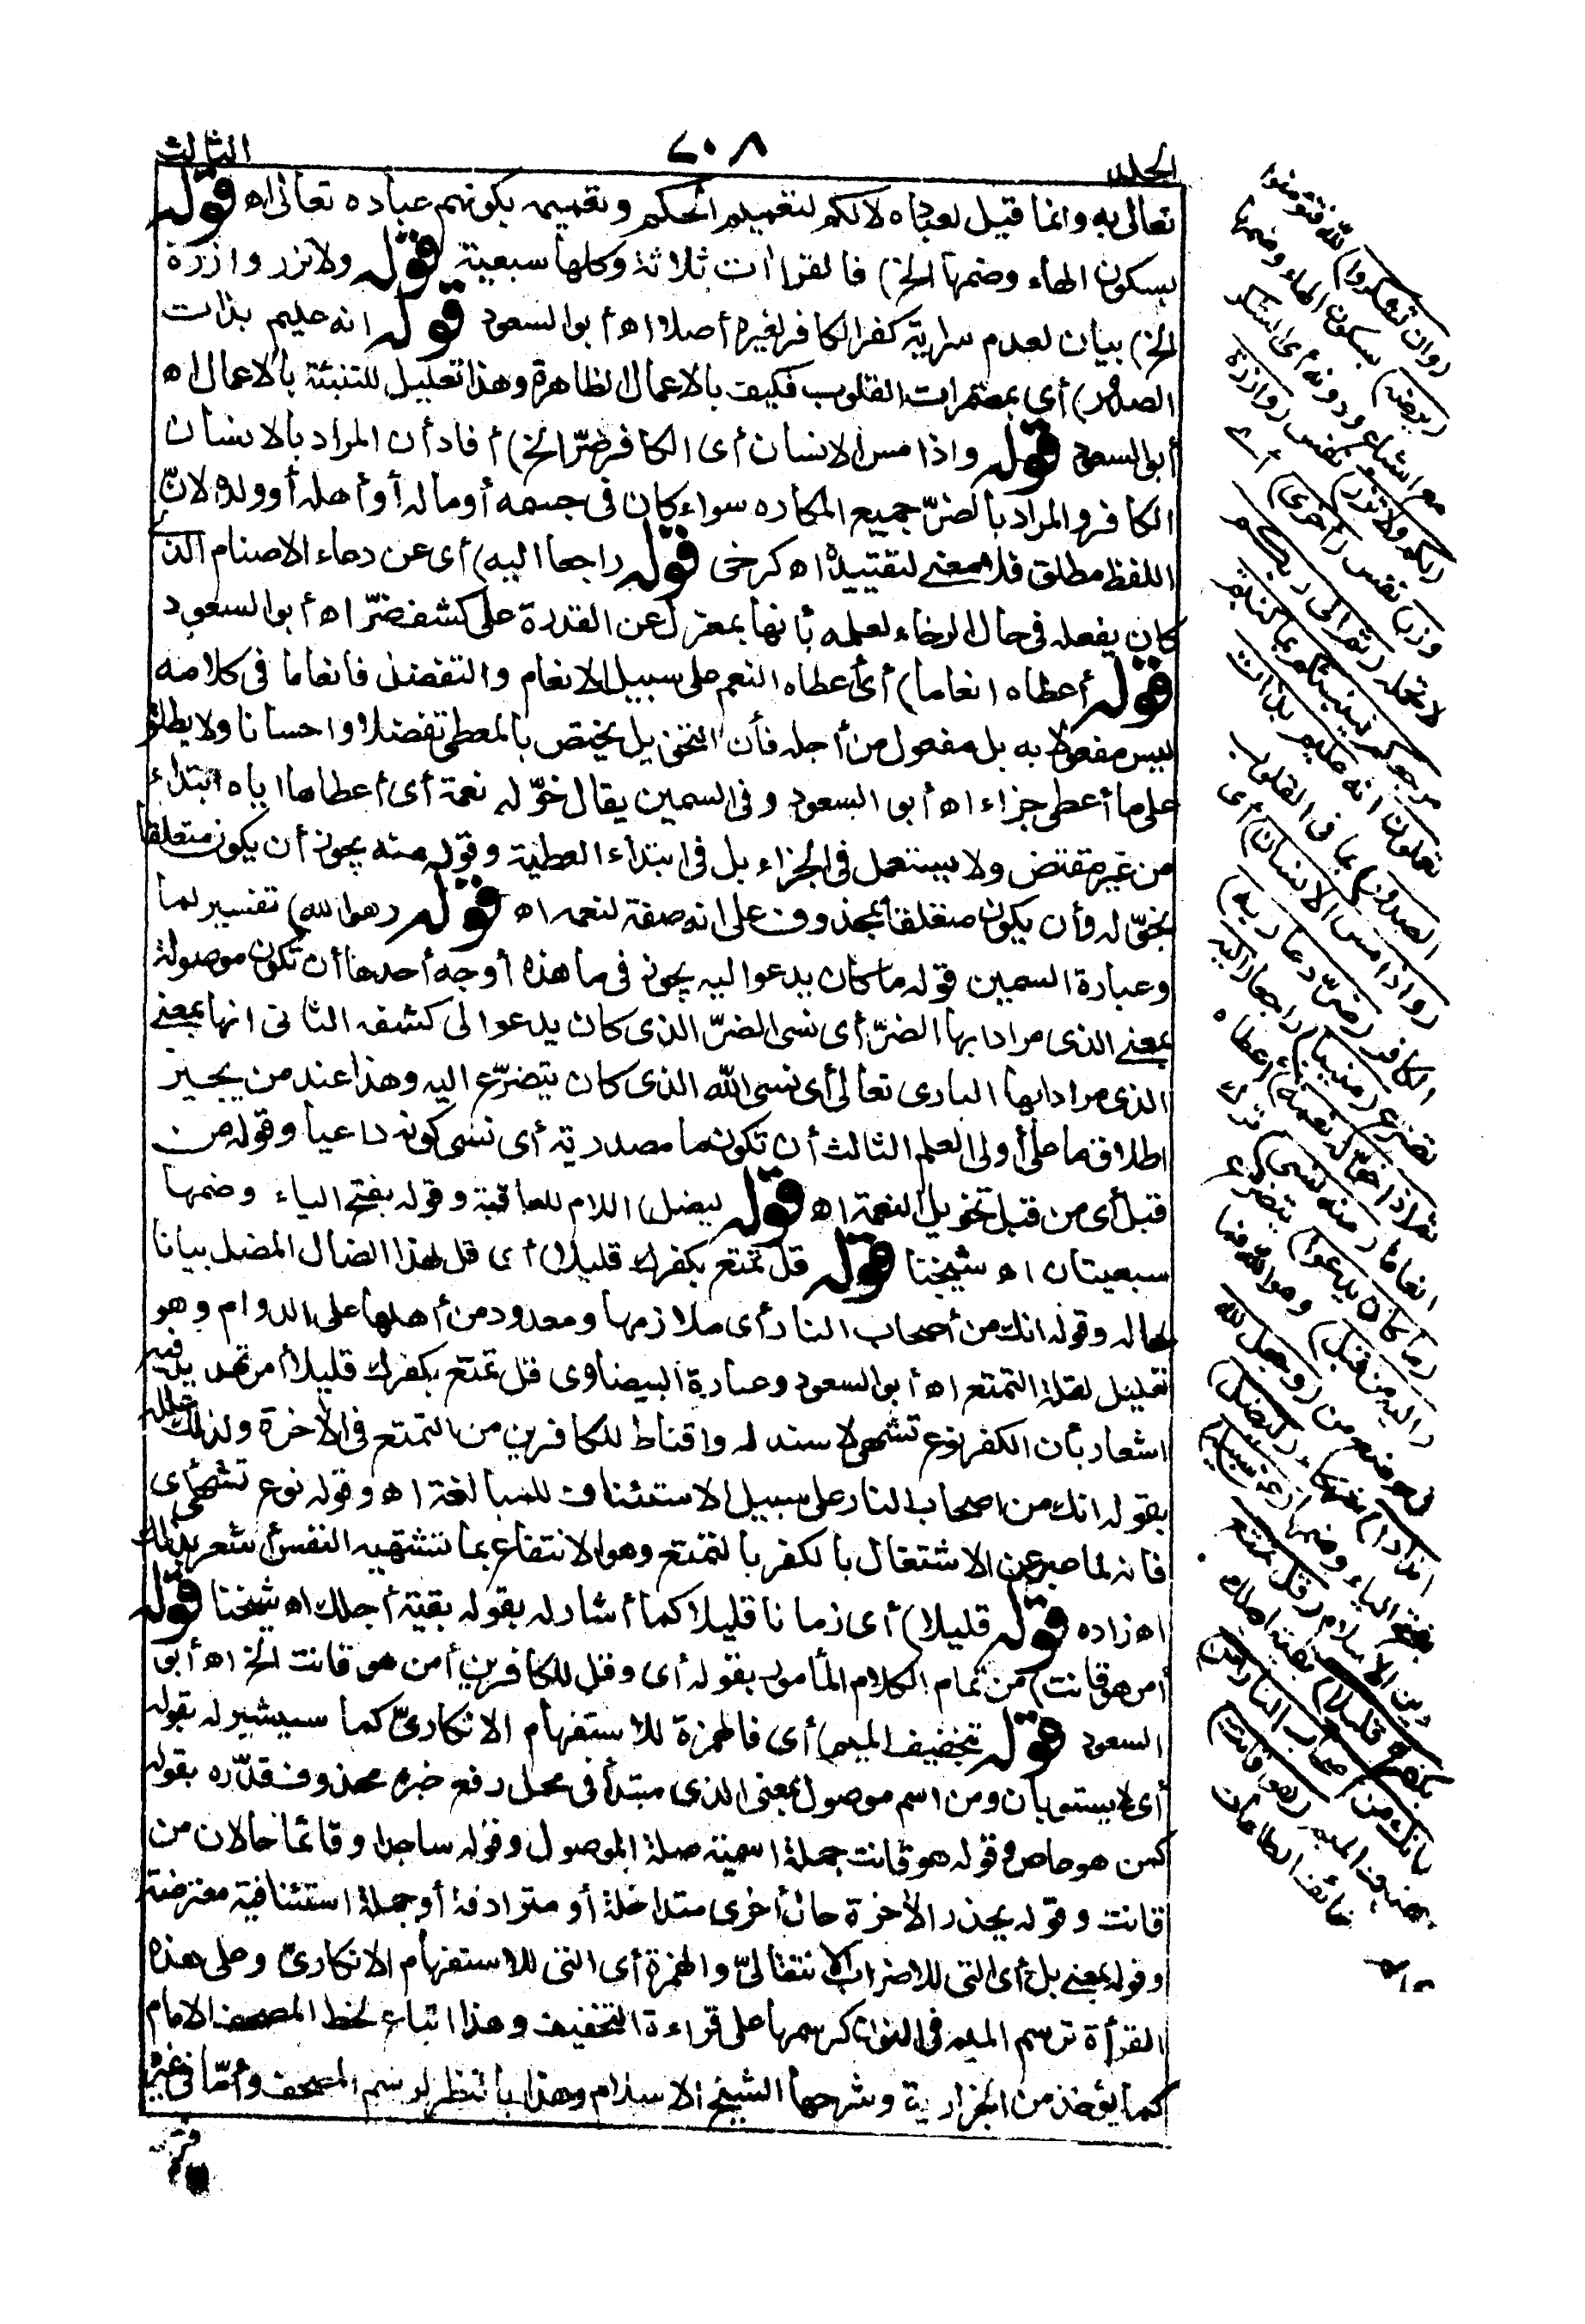 الجلد
٦٠٨
الثالث
تعالى به وانما قيل لعباده لا لكم لتعميم الحكم وتعميمه بكونهم عباده تعالى اه قوله
بسكون الهاء وضمها الخ) فالقراآت ثلاثة وكلها سبعية قوله ولا تزر وازرة
الخ) بيان لعدم سراية كفر الكافر لغيره أصلا اه أبو السعود قوله انه عليم بذات
الصدور) أي بمضمرات القلوب فكيف بالاعمال الظاهرة وهذا تعليل للتنبئة بالاعمال اه
أبو السعود قوله واذا مس الانسان أى الكافر ضرّ الخ) أفاد أن المراد بالانسان
الكافر والمراد بالضرّ جميع المكاره سواء كان فى جسمه أو ماله أو أهله أو ولده لانّ
اللفظ مطلق فلا معنى لتقييده اه كرخى قوله راجعا اليه) أى عن دعاء الاصنام الذى
كان يفعله فى حال الرخاء لعلمه بأنها بمعزل عن القدرة على كشف ضرّ اه أبو السعود
قوله أعطاه انعاما) أى أعطاه النعم على سبيل الانعام والتفضل فانعاما فى كلامه
ليس مفعولا به بل مفعول من أجله فأن التخويل يختص بالمعطى تفضلا واحسانا ولا يطلق
على ما أعطى جزاء اه أبو السعود وفى السمين يقال خوّله نعمة أى أعطاها اياه ابتداء
من غير مقتض ولا يستعمل فى الجزاء بل فى ابتداء العطية وقوله منه يجوز أن يكون متعلقا
بخوّله وأن يكون متعلقا بمحذوف على انه صفة لنعمه اه قوله وهو الله) تفسير لما
وعبارة السمين قوله ما كان يدعوا ليه يجوز فى ما هذه أوجه أحدها أن تكون موصولة
بمعنى الذى مرادا بها الضرّ أى نسى الضرّ الذى كان يدعو الى كشفه الثانى انها بمعنى
الذى مرادا بها البارى تعالى أى نسى الله الذى كان يتضرّع اليه وهذا عند من يجيز
اطلاق ما على أولى العلم الثالث أن تكون ما مصدرية أى نسى كونه داعيا وقوله من
قبل أى من قبل تخويل النعمة اه قوله ليضل) اللام للعاقبة وقوله بفتح الياء وضمها
سبعيتان اه شيخنا قوله قل تمتع بكفرك قليلا) أى قل لهذا الضال المضل بيانا
لحاله وقوله انك من أصحاب النار أى ملازمها ومعدود من أهلها على الدوام وهو
تعليل لقلة التمتع اه أبو السعود وعبارة البيضاوى قل تمتع بكفرك قليلا أمر تهديد فيه
اشعار بأن الكفر نوع تشهى لا سند له واقناط للكافرين من التمتع فى الآخرة ولذلك علله
بقوله انك من اصحاب النار على سبيل الاستئناف للمبالغة اه وقوله نوع تشهى أى
فانه لما عبر عن الاشتغال بالكفر بالتمتع وهو الانتفاع بما تشتهيه النفس أشعر بذلك
اه زاده قوله قليلا) أى زمانا قليلا كما أشار له بقوله بقية أجلك اه شيخنا قوله
أمن هو قانت) من تمام الكلام المأمور بقوله أى وقل للكافرين أمن هو قانت الخ اه أبو
السعود قوله بتخفيف الميم) أى فالهمزة للاستفهام الانكارىّ كما سيشير له بقوله
أى لا يستويان ومن اسم موصول بمعنى الذى مبتدأ فى محل رفع خبره محذوف قدّره بقوله
كمن هو عاص وقوله هو قانت جملة اسمية صلة الموصول وقوله ساجدا وقائما حالان من
قانت وقوله يحذر الآخرة حال أخرى متداخلة أو مترادفة أو جملة استئنافية معترضة
وقوله بمعنى بل أى التى للاضراب الانتقالىّ والهمزة أى التى للاستفهام الانكارىّ وعلى هذه
القرأة ترسم الميم فى النون كرسمها على قراءة التخفيف وهذا اتباع لخط المصحف الامام
كما يؤخذ من الجزارية وشرحها الشيخ الاسلام وهذا بالنظر لرسم المصحف وأمّا فى غيره
(وان تشكروا) الله فتؤمنوا
(يرضه) بسكون الهاء وضمها
مع اشباع ودونه أى الشكر
(لكم ولا تزر) نفس (وازرة
وزر) نفس (أخرى) أى
لا تحمله (ثم الى ربكم
مرجعكم فينبئكم بما كنتم
تعملون انه عليم بذات
الصدور) بما فى القلوب
(واذا مس الانسان) أى
الكافر (ضرّ دعا ربه)
تضرّع (منيبا) راجعا (اليه
ثم اذا خوّله نعمة) أعطاه
انعاما (منه نسى) ترك
(ما كان يدعوا) يتضرّع
(اليه من قبل) وهو الله فما
فى موضع من (وجعل لله
أندادا) شركاء (ليضل)
بفتح الياء وضمها (عن سبيله)
دين الاسلام (قل تمتع
بكفرك قليلا) بقية أجلك
(انك من أصحاب النار أمن)
بتخفيف الميم (هو قانت)
قائم بوظائف الطاعات